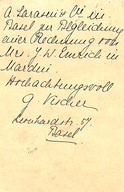 A. Sarasin & Cie in
Basel zur Begleichung
einer Rechnung von
Mr. J. W. Emrich in
Mardin.
Hochachtungsvoll
G. Vischer
Leonhardstr. 57.
Basel